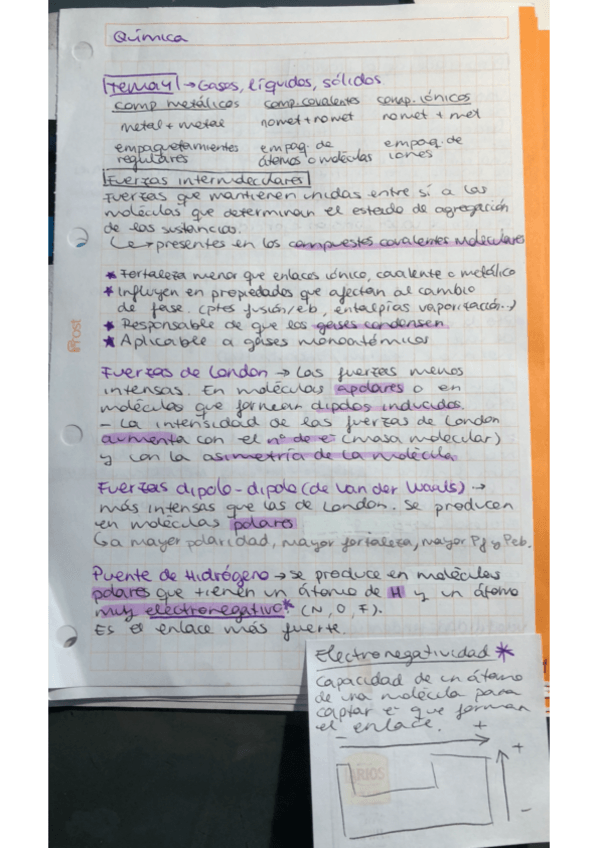 Química
Tema 4 → Gases, líquidos, sólidos
comp metálicos comp. covalentes comp. iónicos
metal + metal nomet + nomet nomet + met
empaquetamientos regulares empaq. de átomos o moléculas empaq. de iones
Fuerzas intermoleculares
Fuerzas que mantienen unidas entre sí a las
moléculas que determinan el estado de agregación
de las sustancias.
↳ presentes en los compuestos covalentes moleculares
* Fortaleza menor que enlaces iónico, covalente o metálico
* Influyen en propiedades que afectan al cambio
de fase. (ptes fusión/eb, entalpías vaporización..)
* Responsable de que los gases condensen
* Aplicable a gases monoatómicos
Fuerzas de London → Las fuerzas menos
intensas. En moléculas apolares o en
moléculas que forman dipolos inducidos.
- La intensidad de las fuerzas de London
aumenta con el nº de e⁻ (masa molecular)
y con la asimetría de la molécula
Fuerzas dipolo-dipolo (de Van der Waals) →
más intensas que las de London. Se producen
en moléculas polares
↳ a mayor polaridad, mayor fortaleza, mayor Pf y Peb.
Puente de Hidrógeno → se produce en moléculas
polares que tienen un átomo de H y un átomo
muy electronegativo* (N, O, F).
Es el enlace más fuerte.
Electronegatividad *
Capacidad de un átomo
de una molécula para
captar e⁻ que forman
el enlace.
- +
+
-